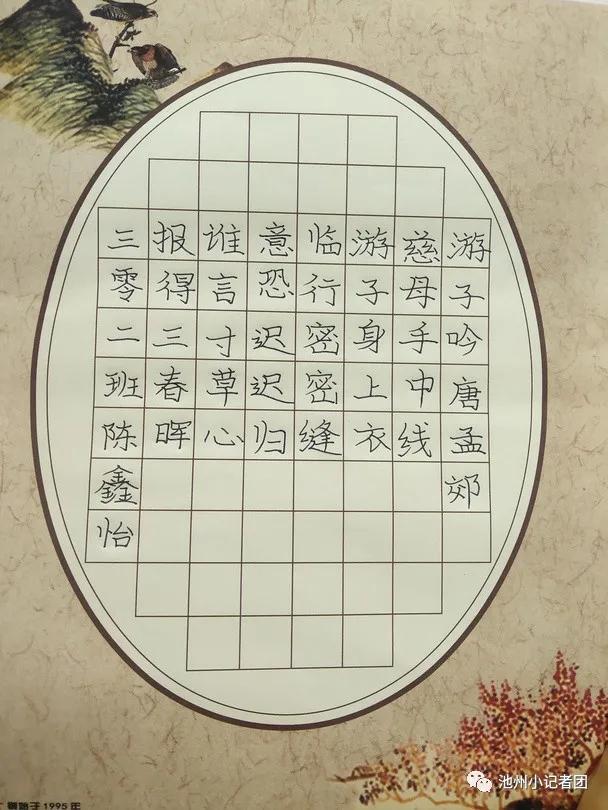 游子吟唐孟郊
慈母手中线
游子身上衣
临行密密缝
意恐迟迟归
谁言寸草心
报得三春晖
三零二班陈鑫怡
池州小记者团
始于1995年